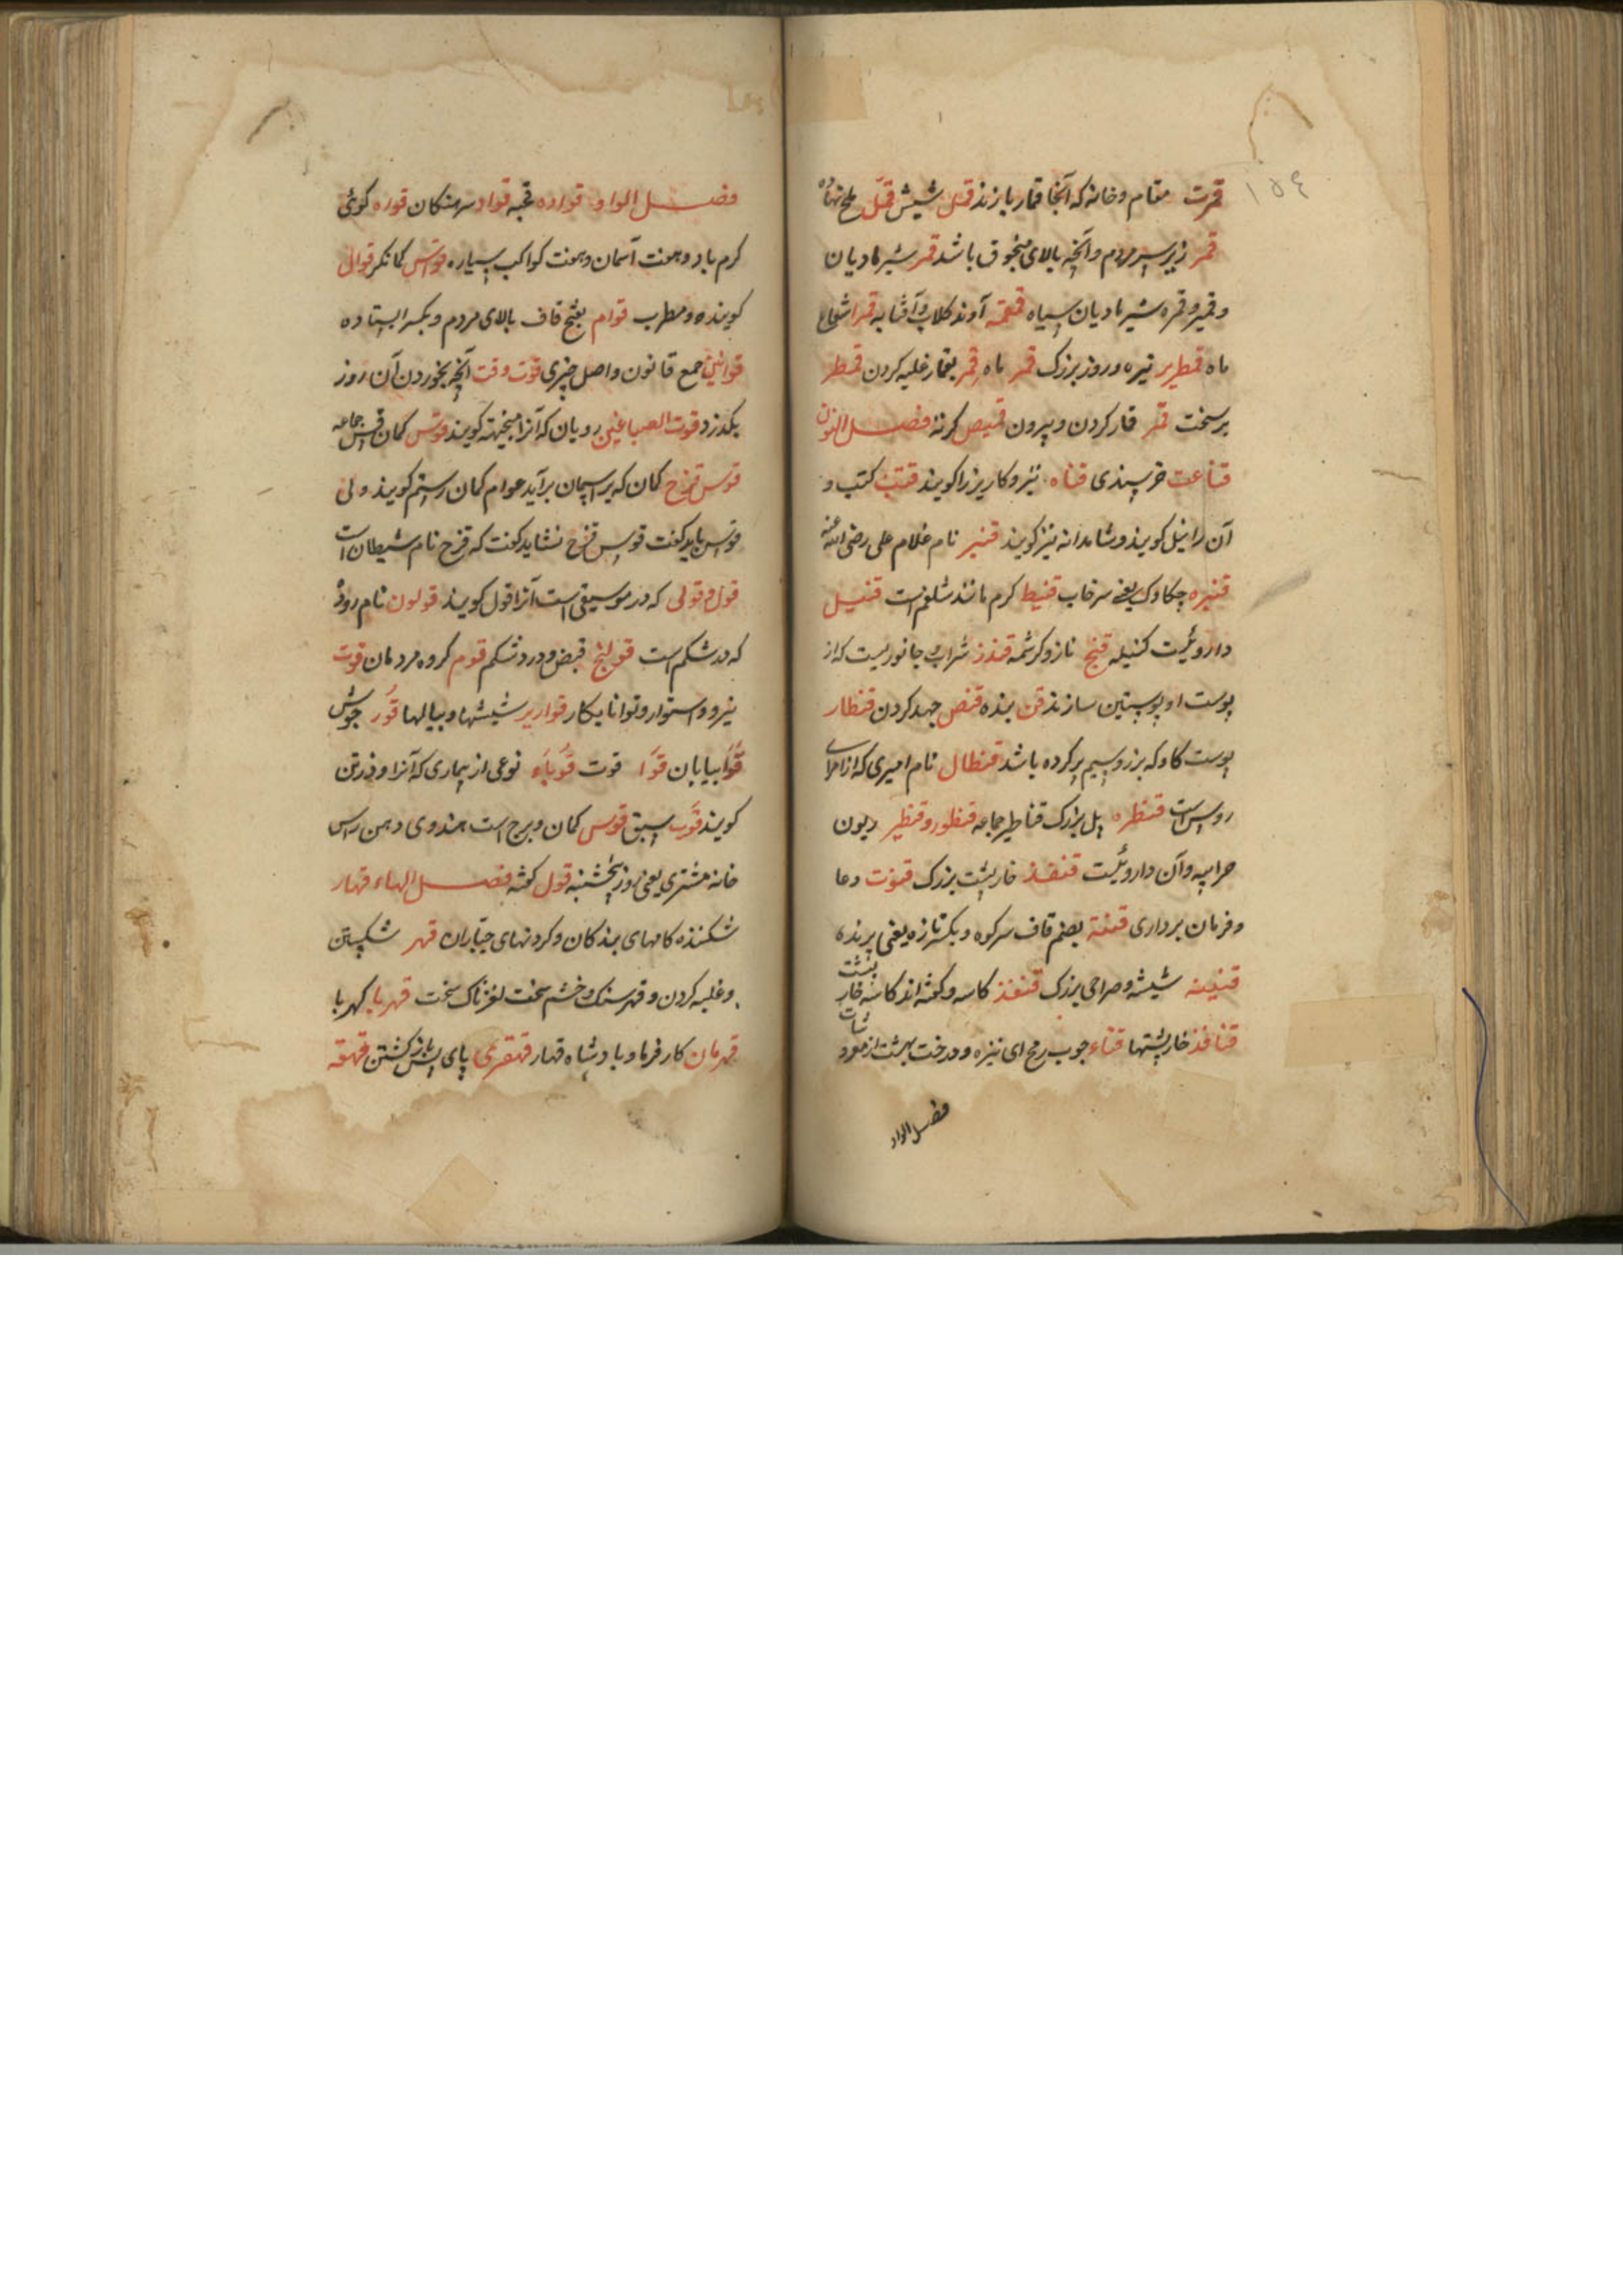 ١٥٤
قمرت مقام و خانه که آنجا قمار بازند قمل شپش قمّل ملخ
قمر زیر سر مردم و آنچه بالای منجوق باشد قمر شیر مادیان
و قمیز و قمزه شیر مادیان سیاه قمقمه آوند کلاب و آفتابه قمرا شعاع
ماه قمطریر تیره و روز بزرک قمر ماه قمر بقمار غلبه کردن قمطر
بر سخت قمر قار کردن و بیرون قمیص کرته فصل النون
قناعت خرسندی قناه نیزه و کاریز را کویند قنب کتب و
آن را نیل کویند و شاهدانه نیز کویند قنبر نام غلام علی رضی الله عنه
قنبره چکاوک یعنی سرخاب قنبیط کرم مانند شلغم است قنبیل
دارویست کنبیله قنج ناز و کرشمه قندز شراب و جانوریست که از
پوست او پوستین سازند قن بنده قنص جهد کردن قنطار
پوست کاو که بزر و سیم پر کرده باشد قنطال نام امیری که از امرای
روس است قنطره پل بزرک قناطیر جماعه قنطور و قنطیر دیون
و آن دارویست قنفذ خارپشت بزرک قنوت دعا
و فرمان برداری قنة بضم قاف سر کوه و بکسر تازه یعنی پرنده
قنینه شیشه و صراحی بزرک قنفذ کاسه و کفته اند کاسه خار پشت
قنافذ خارپشتها قناء چوب رمح ای نیزه و درخت بهشت از
فصل الواو
فصل الواو قواده قحبه قواد سرهنکان قوره کوئی
کرم باد و هفت آسمان و هفت کواکب سیاره قواس کمانکر قوال
کوینده و مطرب قوام بفتح قاف بالای مردم و بکسر ایستاده
قوانین جمع قانون و اصل چیزی قوت وقت آنچه بخوردن آن روز
بکذرد قوت الصباغین رویان که آنرا کویند قوس کمان قس جماعه
قوس قزح کمان که بر اسمان برآید عوام کمان رستم کویند ولی
قوس باید کفت قوس قزح نشاید کفت که قزح نام شیطان است
قول و قولی که در موسیقی است آنرا قول کویند قولون نام روده
که در شکم است قولنج قبض و درد شکم قوم کروه مردمان قوت
نیرو و استوار و توانا بکار قواریر شیشها و پیالها قور جوش
قوا بیابان قوا قوت قوباء نوعی از بیماری که آنرا
کویند قوب سبق قوس کمان و برج است هندوی دهن راس
خانه مشتری یعنی روز پنجشنبه قول کفته فصل الهاء قهار
شکننده کامهای بندکان و کردنهای جباران قهر شکستن
و غلبه کردن و قهر سنک و خشم سخت لغزناک سخت قهربا کهربا
قهرمان کار فرما و بادشاه قهار قهقری پای پس باز کشتن قهقه